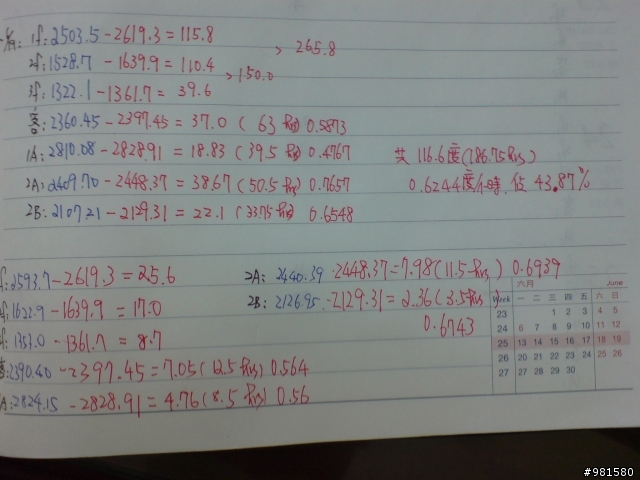 1f: 2503.5-2619.3=115.8
265.8
2f: 1528.7-1639.9=110.4
150.0
3f: 1322.1-1361.7=39.6
客: 2360.45-2397.45=37.0 ( 63 hrs) 0.5873
1A: 2810.08-2828.91=18.83 (39.5 hrs) 0.4767
共 116.6度(186.75hrs)
2A: 2409.70-2448.37=38.67 (50.5 hrs) 0.7657
0.6244度/小時, 佔 43.87%
2B: 2107.21-2129.31=22.1 (33.75 hrs) 0.6548
f: 2593.7-2619.3=25.6
2A: 2440.39-2448.37=7.98(11.5 hrs) 0.6939
f: 1622.9-1639.9=17.0
2B: 2126.95-2129.31=2.36(3.5hrs)
0.6743
f: 1353.0-1361.7=8.7
客: 2390.40-2397.45=7.05(12.5 hrs) 0.564
A: 2824.15-2828.91=4.76(8.5 hrs) 0.56
六月 June
Week 一 二 三 四 五 六 日
23 1 2 3 4 5
24 6 7 8 9 10 11 12
25 13 14 15 16 17 18 19
26 20 21 22 23 24 25 26
27 27 28 29 30
#981580